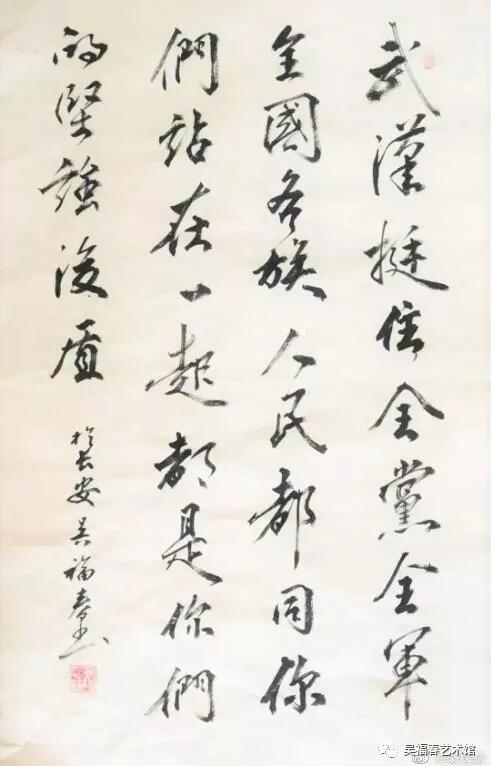 武漢挺住全黨全軍
全國各族人民都同你
們站在一起都是你們
的堅強後盾
於長安吴福春书
吴福春艺术馆